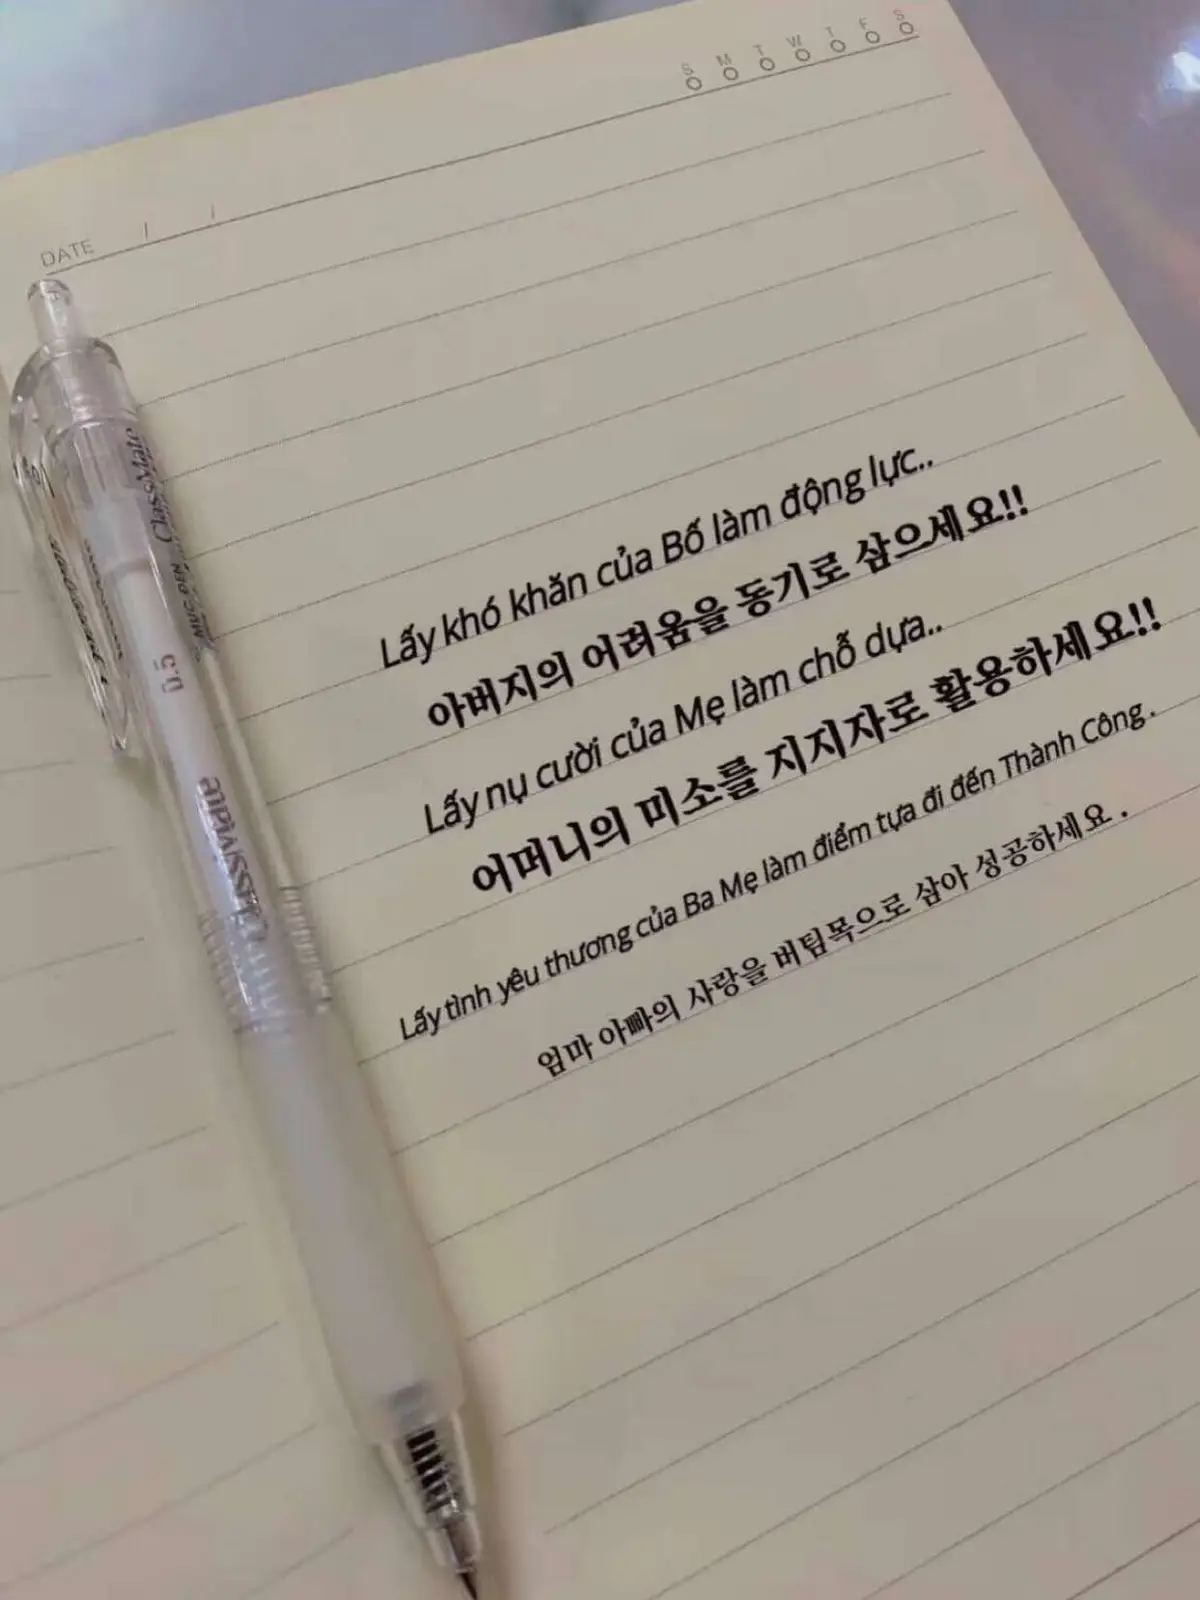 S M T W T F S
DATE / /
Lấy khó khăn của Bố làm động lực..
아버지의 어려움을 동기로 삼으세요!!
Lấy nụ cười của Mẹ làm chỗ dựa..
어머니의 미소를 지지자로 활용하세요!!
Lấy tình yêu thương của Ba Mẹ làm điểm tựa đi đến Thành Công.
엄마 아빠의 사랑을 버팀목으로 삼아 성공하세요.
ClassMate
MỰC ĐEN
0.5
ClassMate